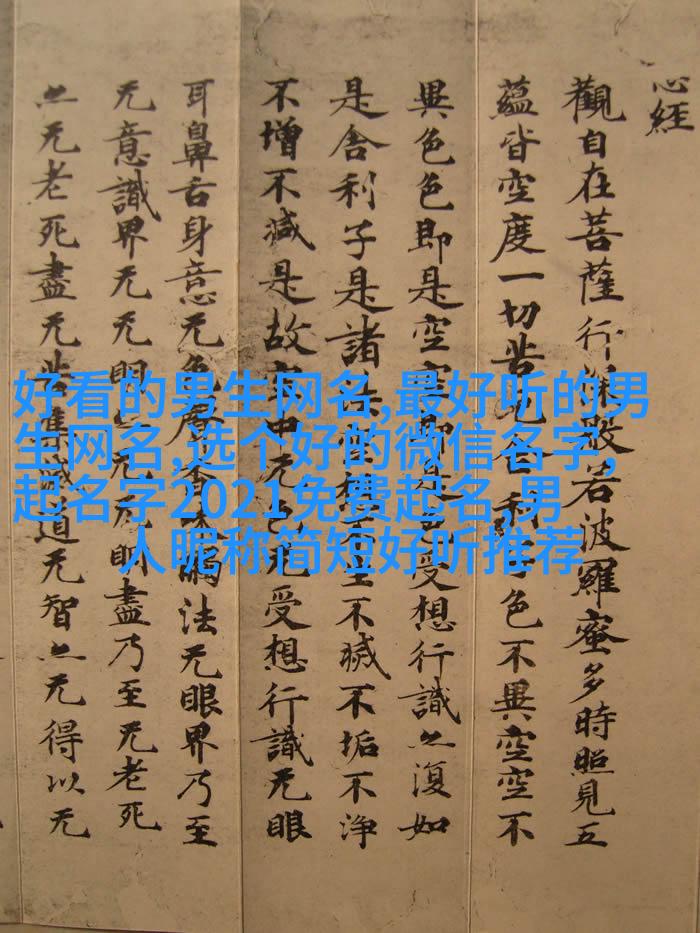 心經
觀自在菩薩行深般若波羅蜜多時照見五
蘊皆空度一切苦厄舍利子色不異空空不
異色色即是空空即是色受想行識亦復如
是舍利子是諸不滅不垢不淨
不增不減是故空中无色无受想行識无眼
耳鼻舌身意无色聲香味觸法无眼界乃至
无意識界无无明亦无无明盡乃至无老死
亦无老死盡无苦集滅道无智亦无得以无
好看的男生网名,最好听的男
生网名,选个好的微信名字,
起名字2021免费起名,男
人昵称简短好听推荐